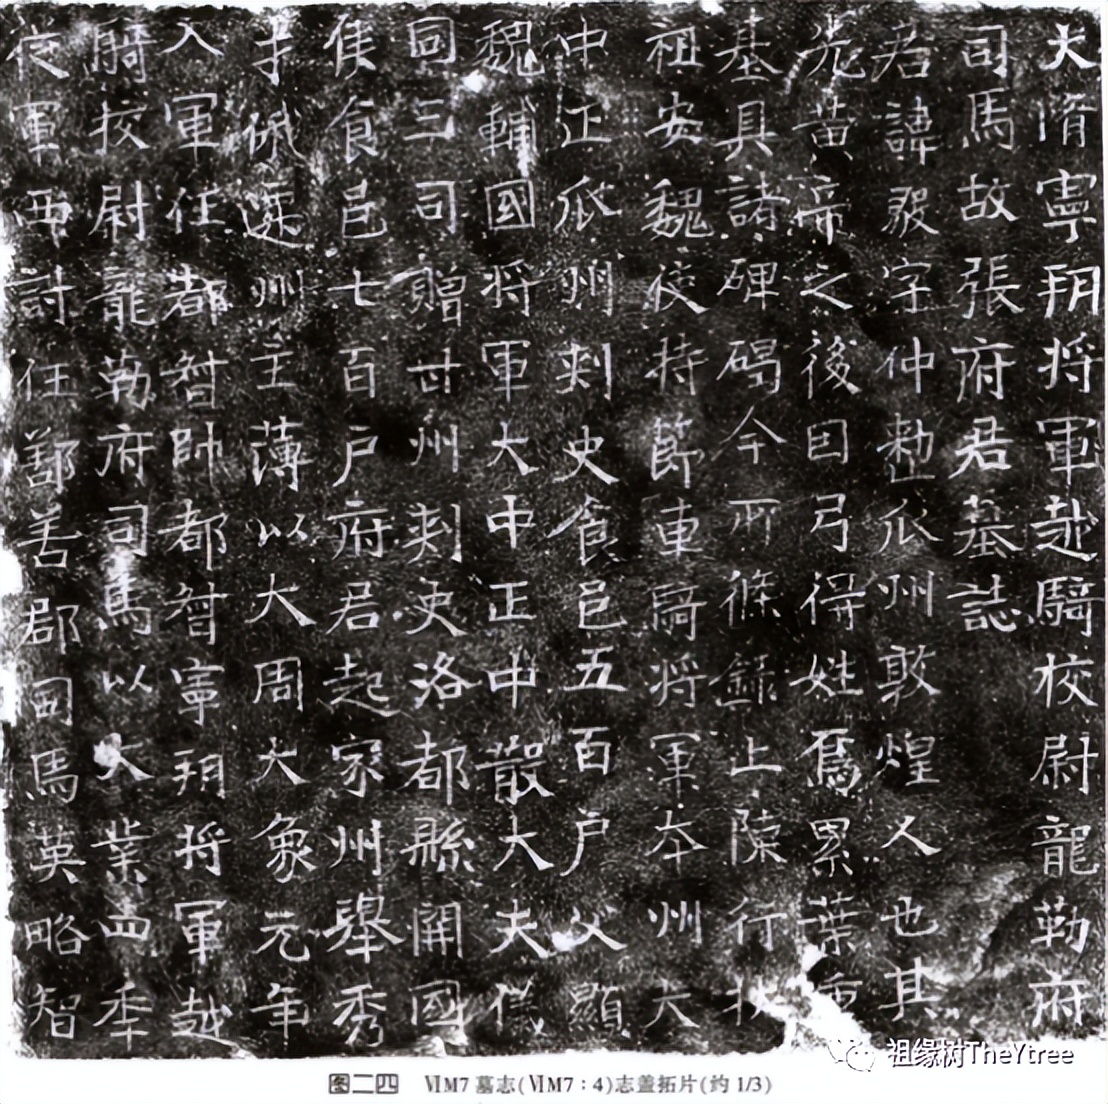 大隋寧朔将軍越騎校尉龍勒府
司馬故張府君墓誌
君諱毅字仲懃瓜州敦煌人也其
先黄帝之後因弓得姓焉累葉重
基具諸碑碣今所條録上陳行
祖安魏使持節車騎将軍本州大
中正瓜州刾史食邑五百户父顯
魏輔國将軍大中正中散大夫儀
同三司贈甘州刾史洛都縣開國
侯食邑七百户府君起家州舉秀
才俄遷州主薄以大周大象元年
入軍任都督帥都督寧朔将軍越
騎校尉龍勒府司馬以大業四年
從軍西討任鄯善郡司馬英略智
祖缘树TheYtree
图二四 ⅥM7墓志(ⅥM7：4)志盖拓片(约1/3)